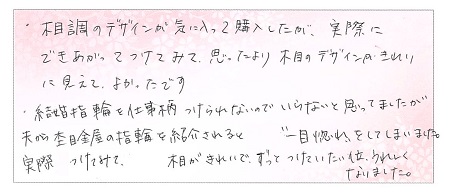 ・木目調のデザインが気に入って購入したが、実際に
できあがってつけてみて、思ったより木目のデザインがきれい
に見えて、よかったです
・結婚指輪を仕事柄つけられないのでいらないと思ってましたが
夫から杢目金屋の指輪を紹介されると "一目惚れ"をしてしまいました。
実際 つけてみて、 木目がきれいで、ずっとつけていたい位、うれしく
なりました。